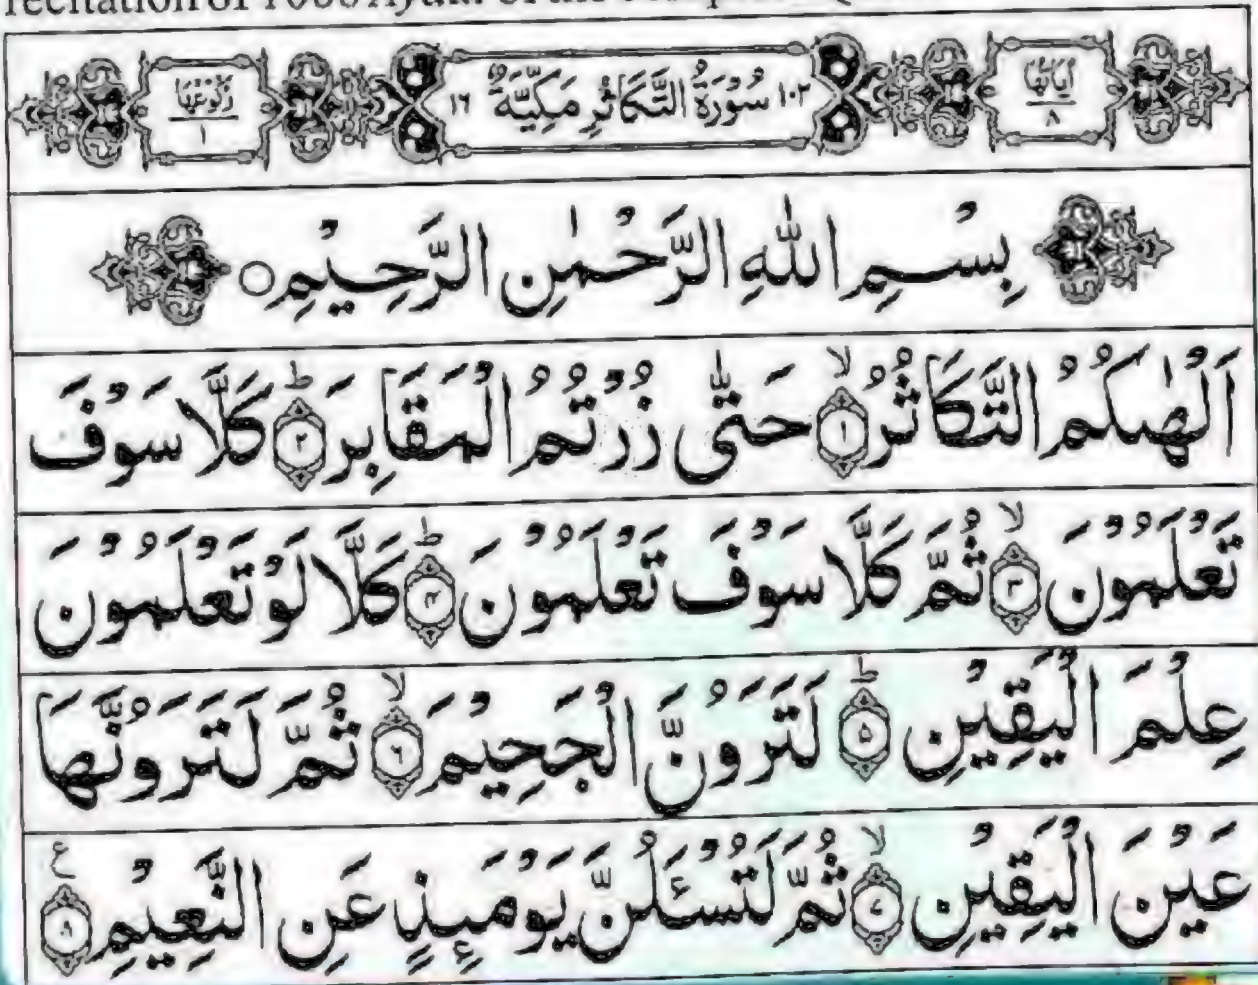 recitation of 1000 Ayaat of the
اٰيَاتُهَا ٨
١٠٢ سُوْرَةُ التَّكَاثُرِ مَكِّيَّةٌ ١٦
رُكُوْعُهَا ١
بِسْمِ اللّٰهِ الرَّحْمٰنِ الرَّحِيْمِ○
اَلْهٰىكُمُ التَّكَاثُرُ ۙ﴿١﴾ حَتّٰى زُرْتُمُ الْمَقَابِرَ ؕ﴿٢﴾ كَلَّا سَوْفَ
تَعْلَمُوْنَ ۙ﴿٣﴾ ثُمَّ كَلَّا سَوْفَ تَعْلَمُوْنَ ؕ﴿٤﴾ كَلَّا لَوْ تَعْلَمُوْنَ
عِلْمَ الْيَقِيْنِ ؕ﴿٥﴾ لَتَرَوُنَّ الْجَحِيْمَ ۙ﴿٦﴾ ثُمَّ لَتَرَوُنَّهَا
عَيْنَ الْيَقِيْنِ ۙ﴿٧﴾ ثُمَّ لَتُسْـَٔلُنَّ يَوْمَىِٕذٍ عَنِ النَّعِيْمِ ﴿٨﴾ ع